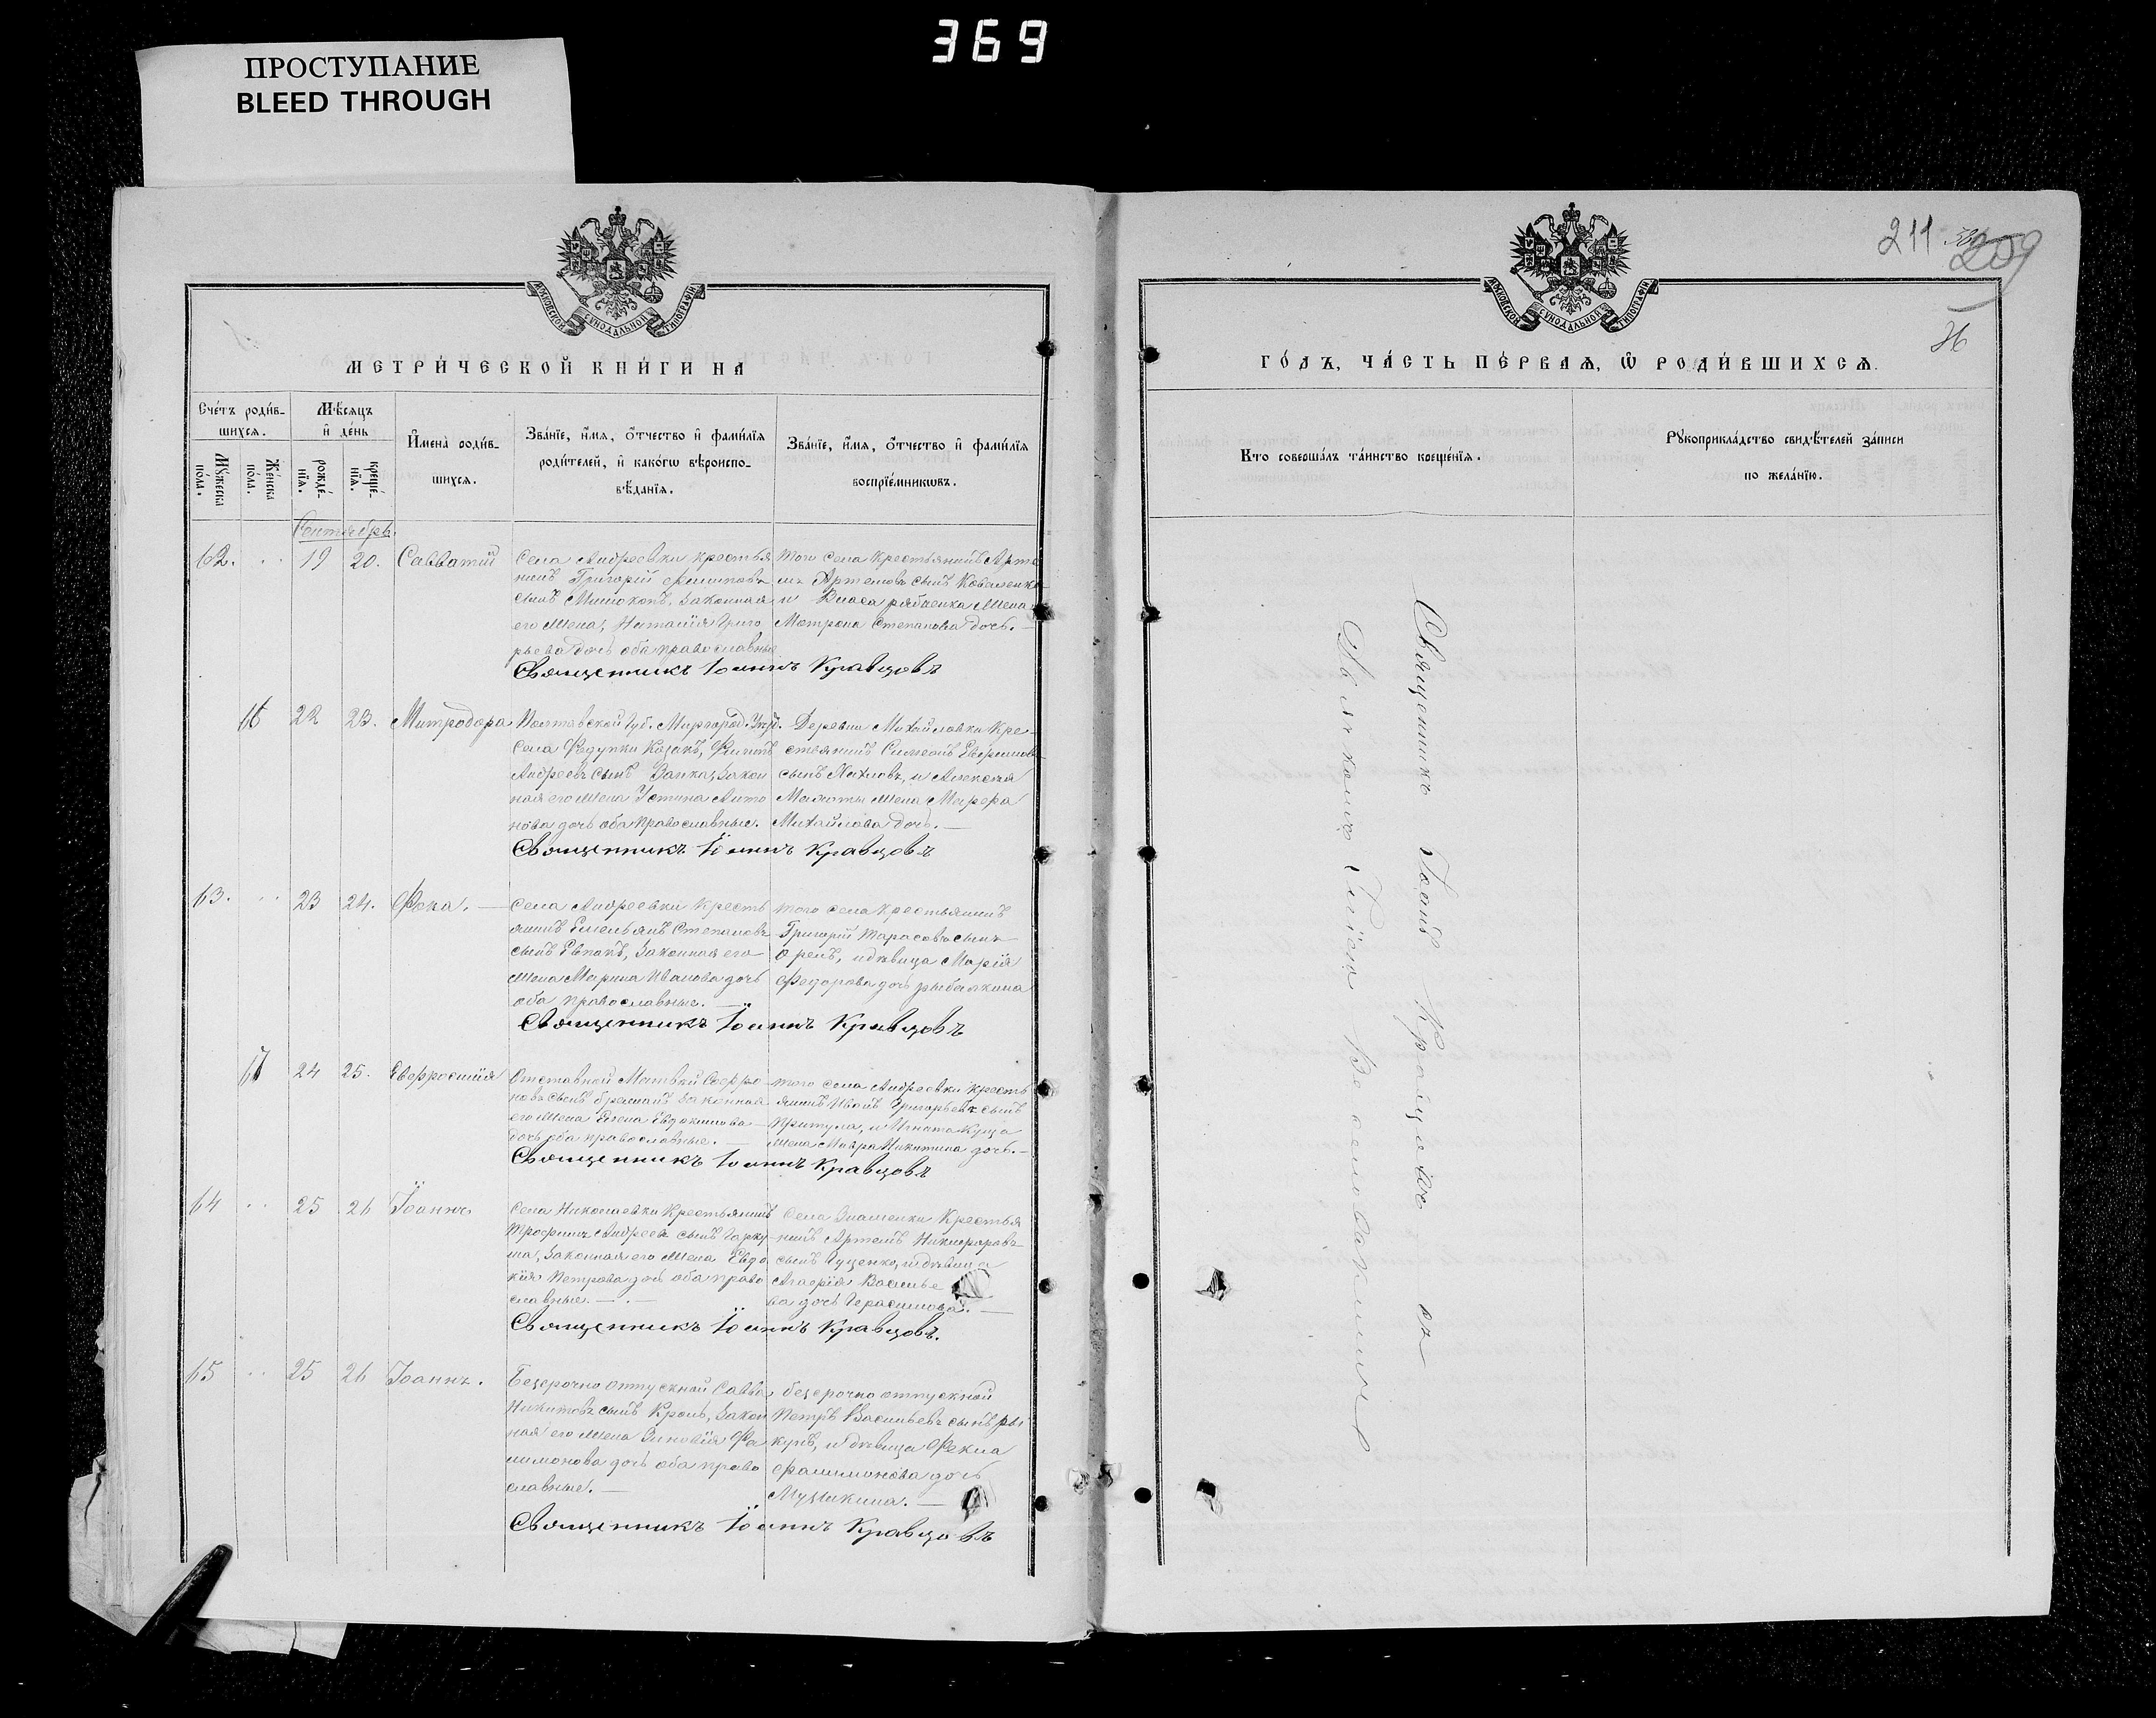 369
ПРОСТУПАНИЕ
BLEED THROUGH
МОСКОВСКОЙ СѴНОДАЛЬНОЙ ТИПОГРАФІИ
МЕТРИ́ЧЕСКОЙ КНИ́ГИ НА
Сче́тъ роди́в-
шихсѧ.
Мꙋ́жеска по́ла.
Же́нска по́ла.
Мѣ́сѧцъ и҆ де́нь
рожде́-нїѧ.
креще́-нїѧ.
И҆мена̀ роди́в-
шихсѧ.
Зва́нїе, и҆́мѧ, ѻ҆́тчество и҆ фами́лїѧ
роди́телей, и҆ како́гѡ вѣроиспо-
вѣ́данїѧ.
Зва́нїе, и҆́мѧ, ѻ҆́тчество и҆ фами́лїѧ
воспрїе́мникѡвъ.
Сентябрь.
62. 19 20. Савватій
Села Андреевки крестья
нинъ Григорій Филиповъ
сынъ законная
его жена, Наталія Григо
рьева дочь оба православные
того села крестьянинъ Арте
мъ Артемовъ сынъ Коваленко
и Власа Рябченка жена
Матрона Степанова дочь.
Священникъ Іоаннъ Кравцовъ
22 23. Митродора
Полтавской Губ. Миргород. Уѣзд.
Села Федунки Козакъ, Филипъ
Андреевъ сынъ Заика, Закон
ная его жена Устина Анто
нова дочь оба православные.
Деревни Михайловки Кре-
стьянинъ Симеонъ
сынъ и Алексѣя
жена Марфа
Михайлова дочь.
Священникъ Іоаннъ Кравцовъ
63. 23 24. Фока.
Села Андреевки Кресть
янинъ Емельянъ Степановъ
сынъ законная его
жена Марина Иванова дочь
оба православные.
того села крестьянинъ
Григорій Тарасовъ сынъ
Орелъ, и дѣвица Марія
Федорова дочь Рыбалкина
Священникъ Іоаннъ Кравцовъ
24 25. Евфросинія
Отставной Матвѣй Софро
новъ сынъ законная
его жена Елена Евдокимова
дочь оба православные.
того села Андреевки кресть
янинъ Иванъ Григорьевъ сынъ
Притула, и Игната Куца
жена Мавра Никитина дочь.
Священникъ Іоаннъ Кравцовъ
64 25 26 Іоаннъ
Села Николаевки Крестьянинъ
Трофимъ Андреевъ сынъ Гарку
ша, законная его жена Евдо
кія Петрова дочь оба право
славные.
Села Знаменки Крестья
нинъ Артемъ Никифоровъ
сынъ Гуценко, и дѣвица
Агафія Василье
ва дочь Герасимова.
Священникъ Іоаннъ Кравцовъ.
65 25 26 Іоаннъ.
Безсрочно отпускной Савва
Никитовъ сынъ Кроль, Закон
ная его жена Зиновія Фи
лимонова дочь оба право
славные.
безсрочно отпускной
Петръ Васильевъ сынъ
и дѣвица Фекла
Филимонова дочь
Мушкина.
Священникъ Іоаннъ Кравцовъ
211
209
36
МОСКОВСКОЙ СѴНОДАЛЬНОЙ ТИПОГРАФІИ
ГО́ДЪ, ЧА́СТЬ ПЕ́РВАѦ, Ѽ РОДИ́ВШИХСѦ.
Кто̀ соверша́лъ та́инство креще́нїѧ.
Рꙋкоприкла́дство свидѣ́телей за́писи
по жела́нїю.
Священникъ Іоаннъ Кравцовъ съ
Дьякономъ Иліею Веселовскимъ